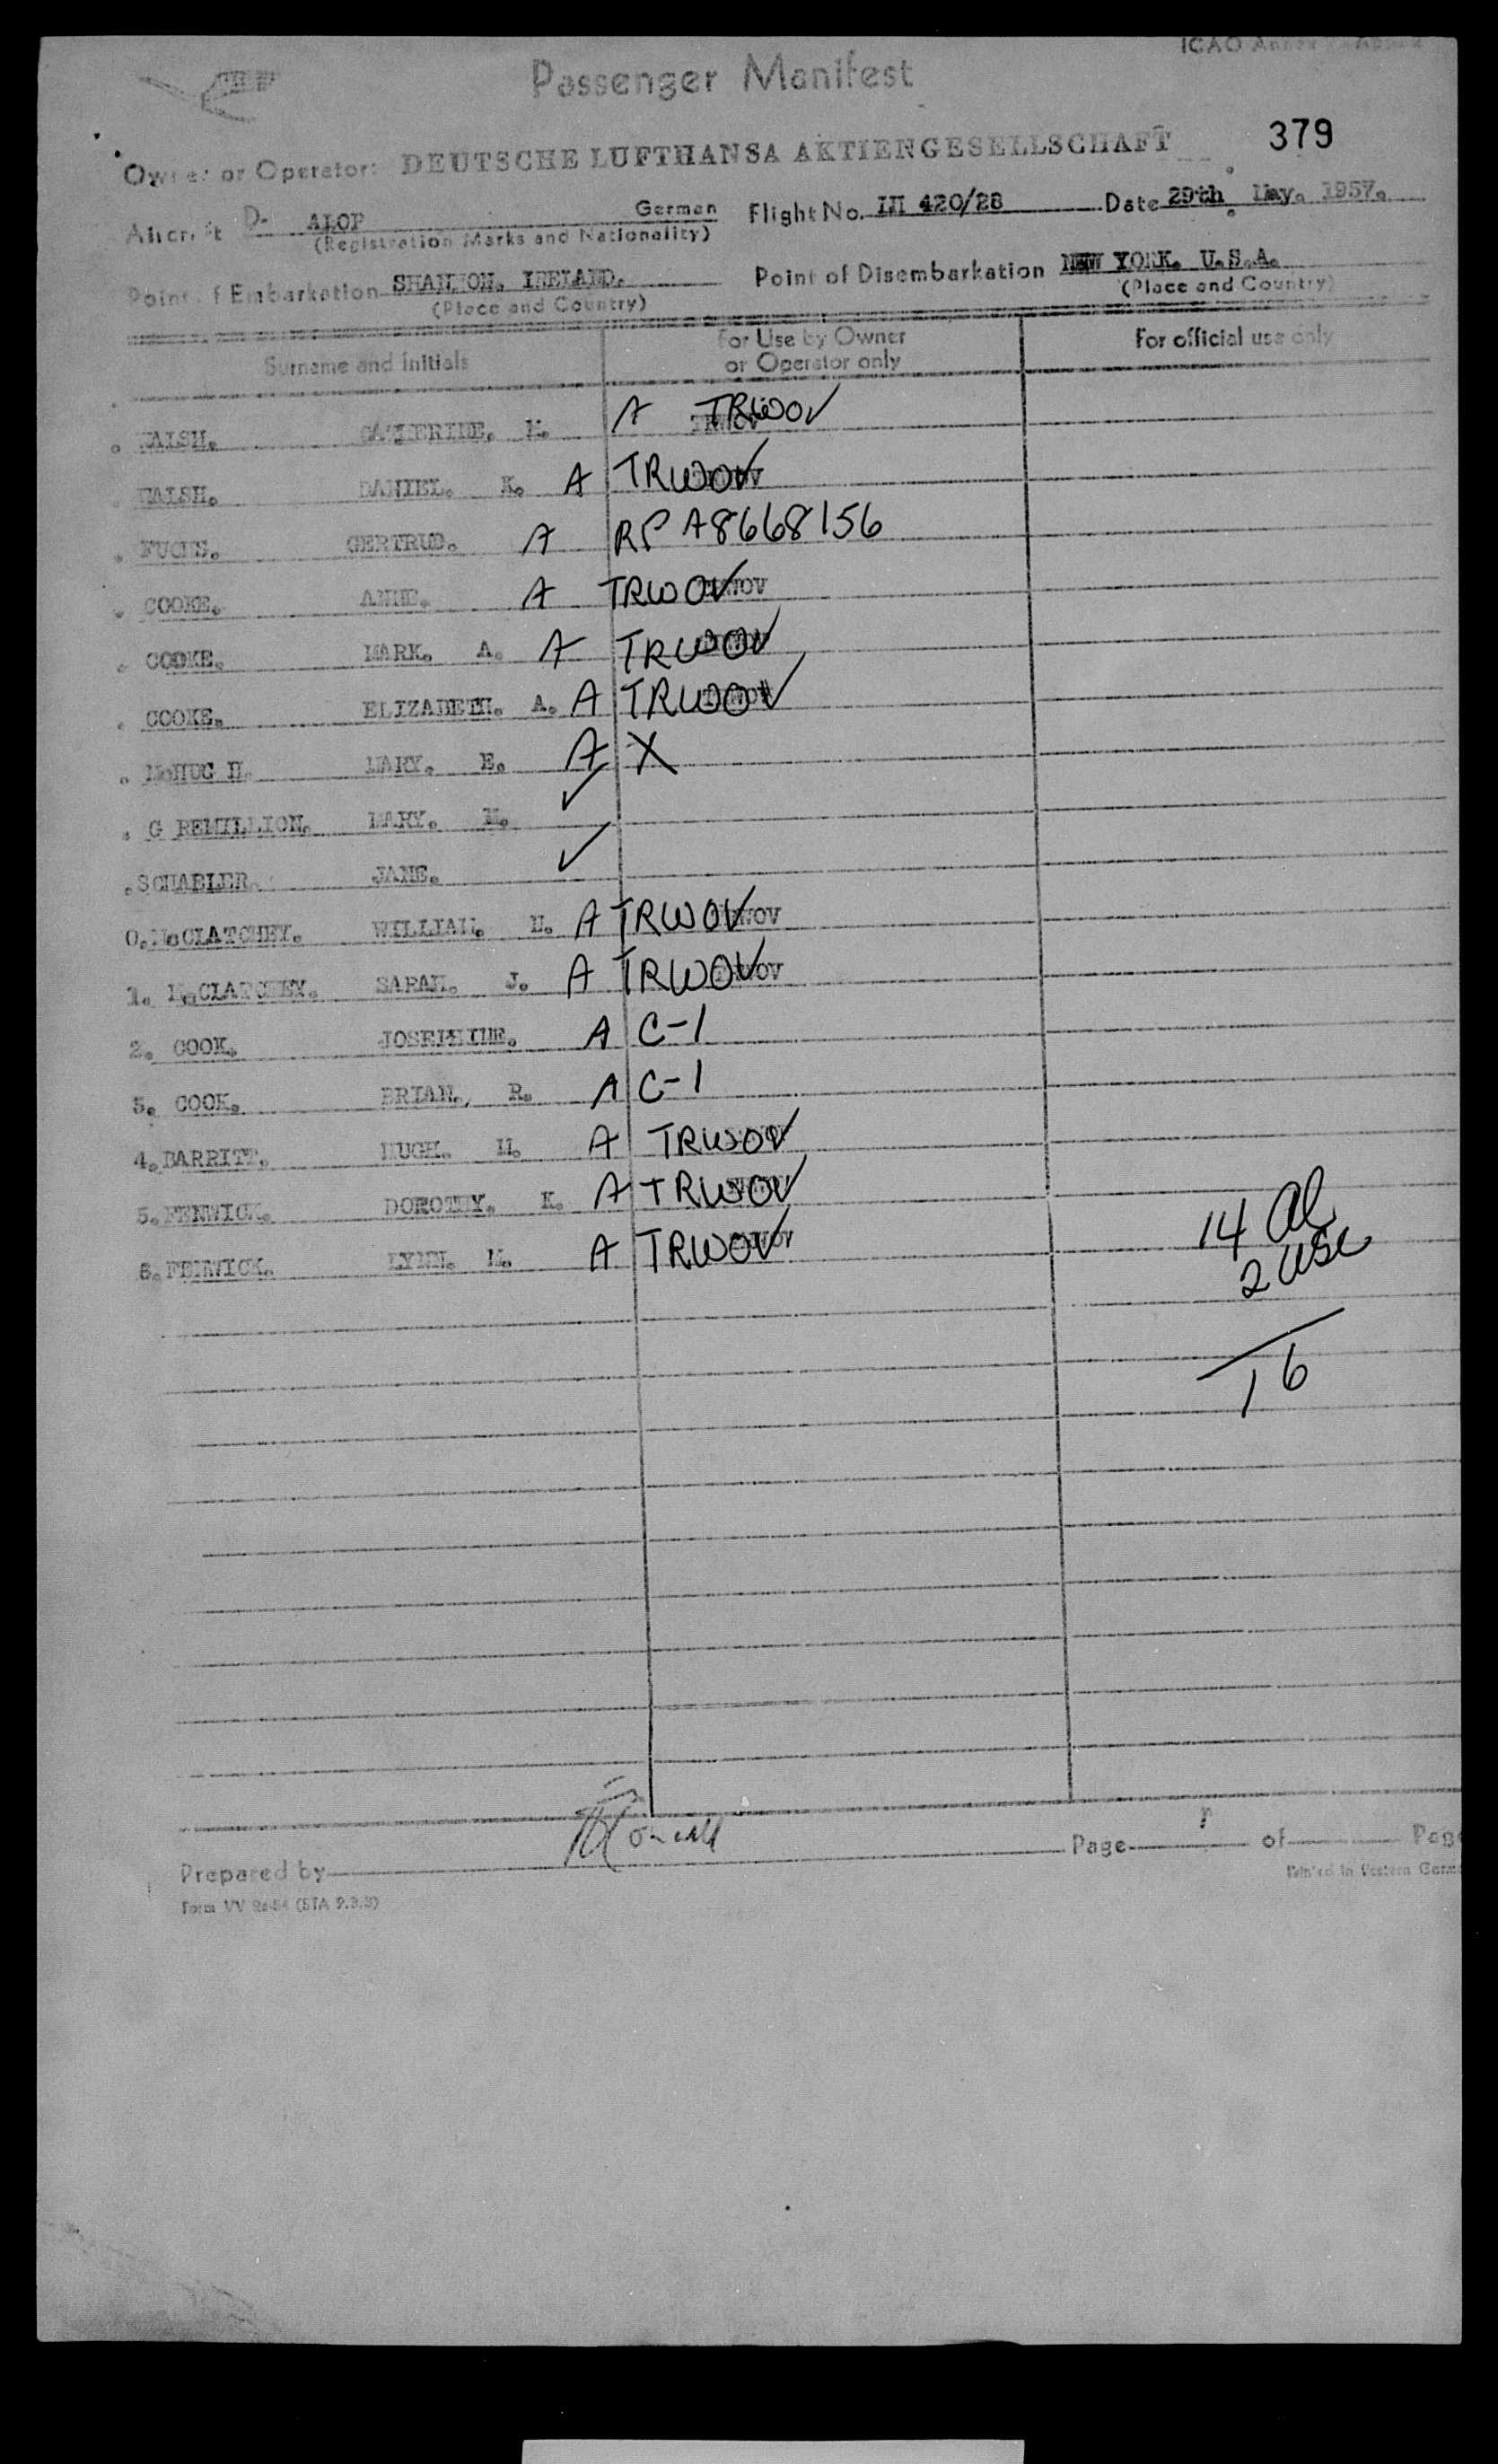 ICAO Annex
Passenger Manifest
379
Owner or Operator: DEUTSCHE LUFTHANSA AKTIENGESELLSCHAFT
Aircraft D- ALOP German Flight No. LH 420/28 Date 29th May. 1957.
(Registration Marks and Nationality)
Point of Embarkation SHANNON. IRELAND. Point of Disembarkation NEW YORK. U.S.A.
(Place and Country) (Place and Country)
Surname and Initials For Use by Owner or Operator only For official use only
WALSH. CATHERINE. A TRWOV
WALSH. DANIEL. K. A TRWOV
FUCHS. GERTRUD. A RP A8668156
COOKE. ANNE. A TRWOV
COOKE. MARK. A. A TRWOV
COOKE. ELIZABETH. A. A TRWOV
McHUG H. MARY. E. A X
G REMILLION. MARY. ✓
SCHABLER. JANE. ✓
0. McCLATCHEY. WILLIAM. H. A TRWOV
1. McCLATCHEY. SARAH. J. A TRWOV
2. COOK. JOSEPHINE. A C-1
3. COOK. BRIAN. R. A C-1
4. BARRITT. HUGH. H. A TRWOV
5. FENWICK. DOROTHY. K. A TRWOV
6. FENWICK. LYNN. M. A TRWOV
14 Al
2 USC
16
Prepared by Page of Page
Printed in Western
Form VV (STA 9.3.3)